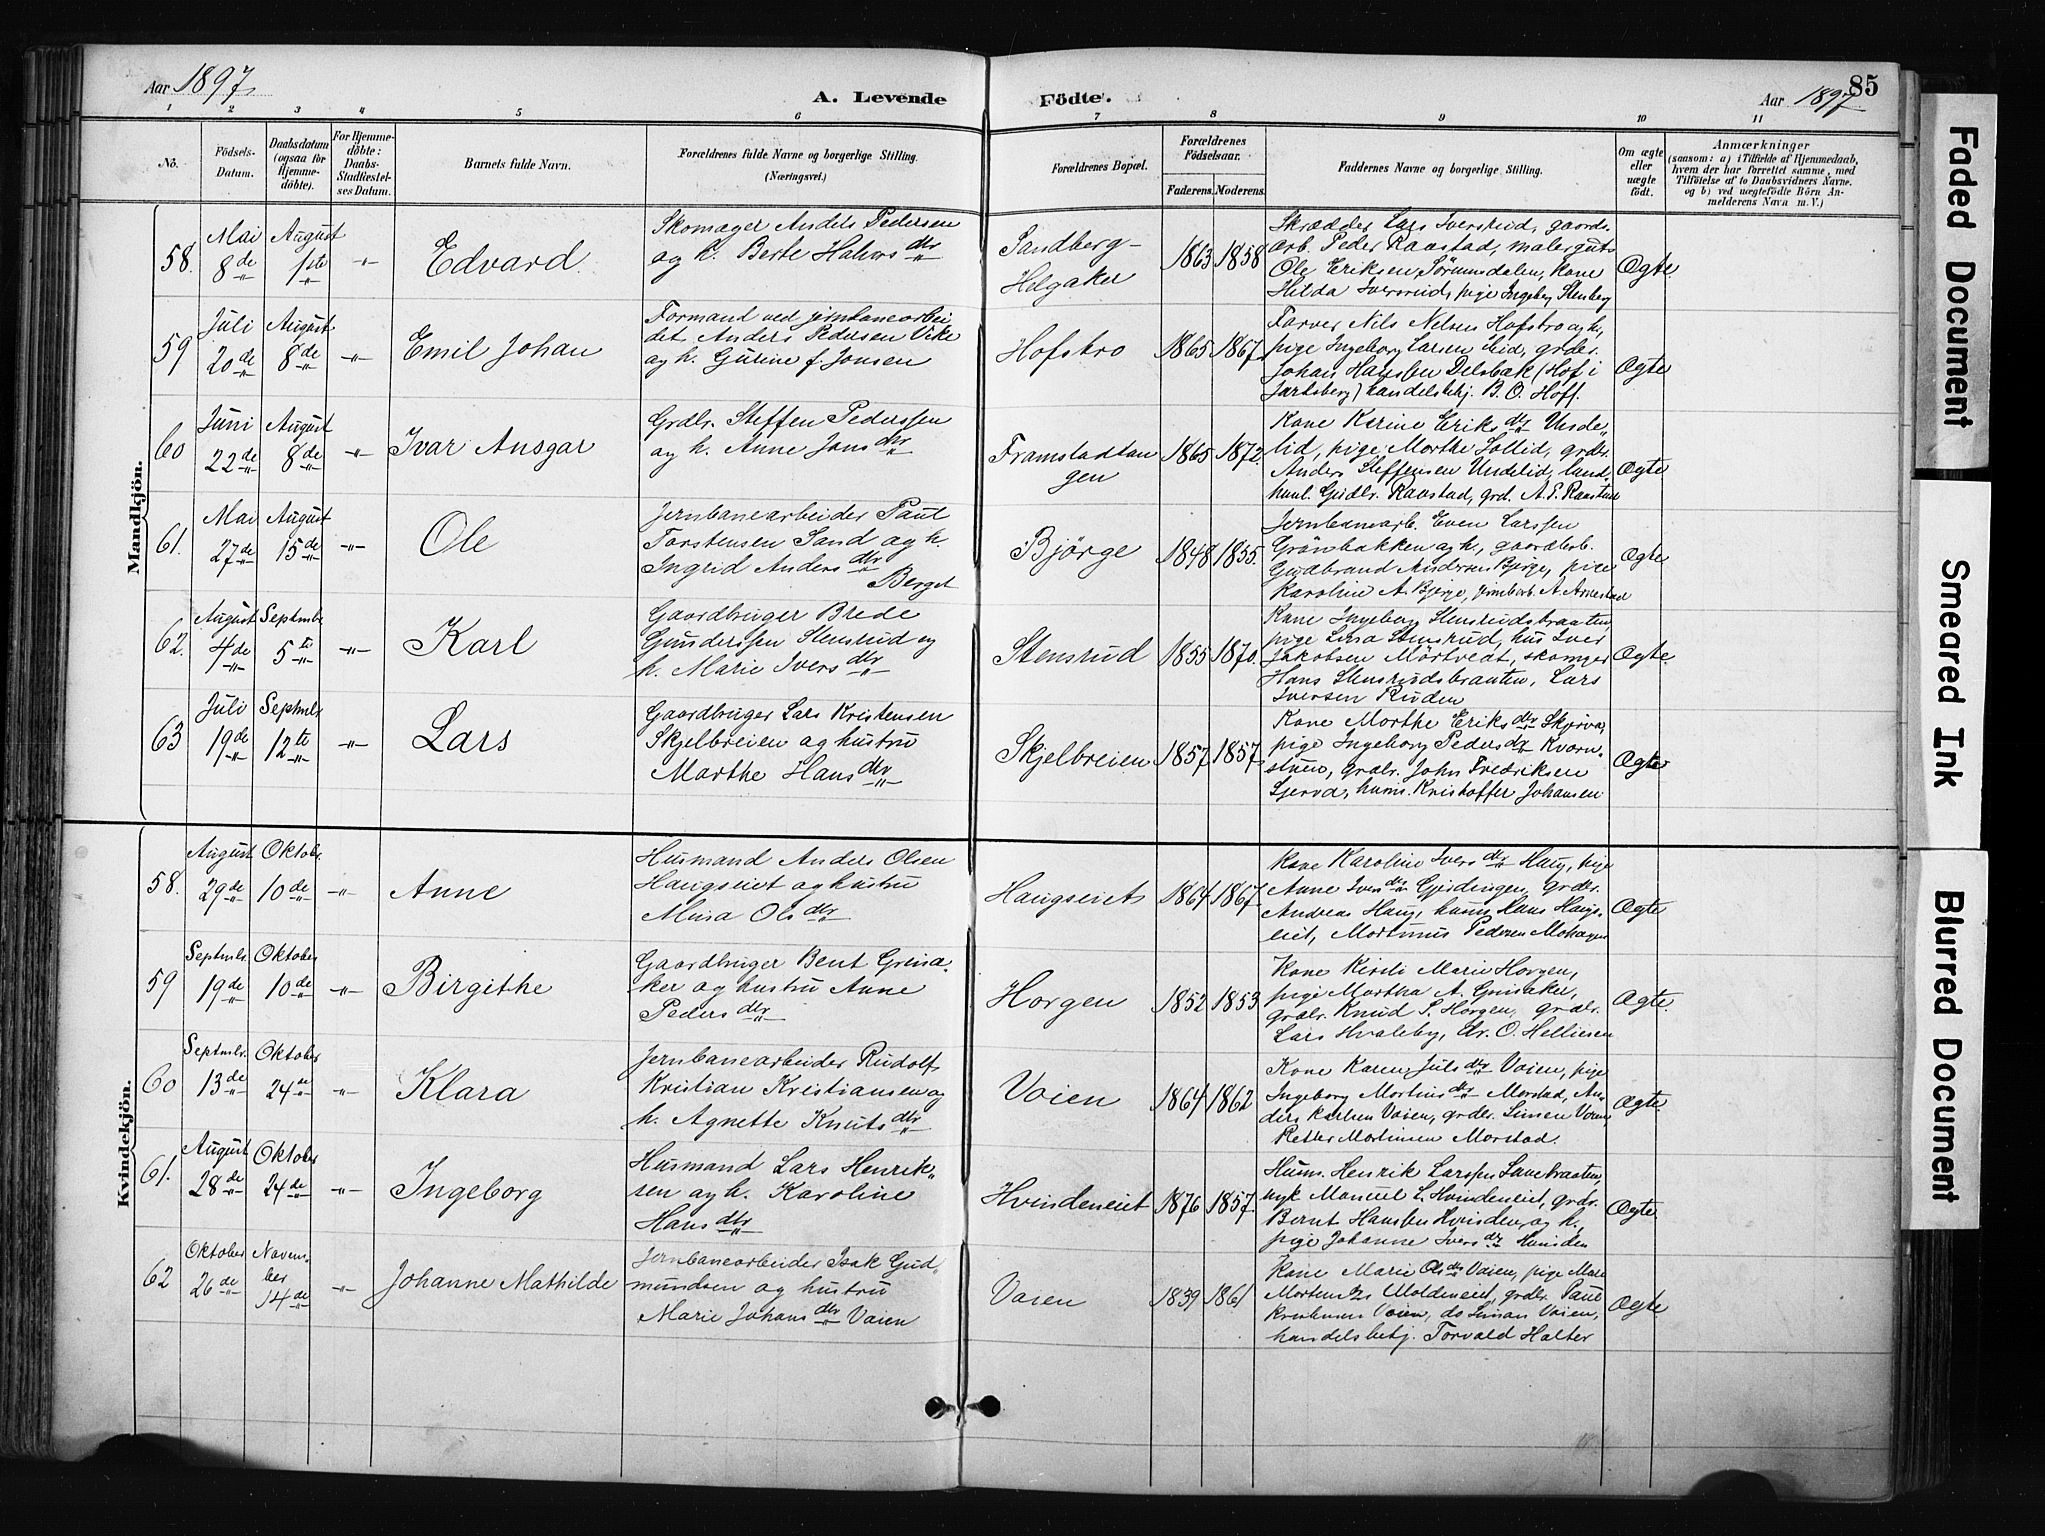 Aar 1897.
A. Levende Födte.
Aar 1897
85
1 2 3 4 5 6 7 8 9 10 11
No.
Födsels-
Datum.
Daabsdatum
(ogsaa for
Hjemme-
döbte).
For Hjemme-
döbte:
Daabs-
Stadfæstel-
ses Datum.
Barnets fulde Navn.
Forældrenes fulde Navne og borgerlige Stilling.
(Næringsvei.)
Forældrenes Bopæl.
Forældrenes
Födselsaar.
Faderens. Moderens.
Faddernes Navne og borgerlige Stilling.
Om ægte
eller
uægte
födt.
Anmærkninger
(saasom: a) i Tilfælde af Hjemmedaab,
hvem der har forrettet samme, med
Tilföielse af to Daabsvidners Navne.
og b) ved uægtefödte Börn An-
melderens Navn m. V.)
Mandkjön.
58.
Mai
8de
August
1ste
Edvard.
Skomager Anders Pedersen
og h. Berte Halvorsdtr
Sandberg-
Helgaker
1863 1858
Skrædder Lars Iversrud, gaards-
arb. Peder Raastad, malergut
Ole Eriksen Sörumsdalen, kone
Hilda Iversrud, pige Ingeborg Stenberg
Ægte
59
Juli
20de
August
8de
Emil Johan
Formand ved jernbanearbei
det Anders Pedersen Vike
og h. Gurine f. Jonsen
Hofsbro
1865 1867.
Farver Nils Nelsen Hofsbro og h.,
pige Ingeborg Larsen Lid, grdbr.
Johan Hanssen Delsbak (Hof i
Jarlsberg) handelsbetj. B. O. Hoff.
Ægte
60
Juni
22de
August
8de
Ivar Ansgar
Grdbr. Steffen Pederssen
og h. Anne Jonsdtr
Framstadtan
gen
1865 1872.
Kone Karine Eriksdtr Unde-
lid, pige Marthe Sollid, grdbr.
Anders Steffensen Undelid, land-
hanl. Gudbr. Raastad, grd. A. E. Raastad
Ægte
61.
Mai
27de
August
15de
Ole
Jernbanearbeider Paul
Torstensen Sand og h.
Ingrid Andersdtr
Berget
Bjørge
1848 1855.
Jernbanearb. Even Larssen
Grönbakken og h., gaardarb.
Gudbrand Andersen Bjørge, pige
Karoline A. Bjørge, jernbarb. A. Arnestad
Ægte
62.
August
4de
Septembr
5te
Karl
Gaardbruger Brede
Gunderssen Stensrud og
h. Marie Iversdtr
Stensrud
1855 1870.
Kone Ingeborg Stensrudsbraaten,
pige Lina Stensrud, hus Iver
Jakobsen Mörtvedt, skomager
Hans Stensrudsbraaten, Lars
Iversen Ruden
Ægte
63
Juli
19de
Septmbr
12te
Lars
Gaardbruger Lars Kristensen
Skjelbreien og hustru
Marthe Hansdtr
Skjelbreien
1857 1857
Kone Marthe Eriksdtr Skjerva,
pige Ingeborg Pedersdtr Kvorn-
stuen, grdbr. John Fredriksen
Sjerva, husm. Kristoffer Johansen
Ægte
Kvindekjön.
58.
August
29de
Oktobr.
10de
Anne
Husmand Anders Olsen
Haugseiet og hustru
Mina Olsdtr
Haugseiet
1864 1867.
Kone Karoline Iversdtr Haug, pige
Anne Iversdtr Gjerdingen, grdbr.
Andreas Haug, husm. Hans Haugs-
eiet, Martinus Pedersen Mohagen
Ægte
59
Septmbr.
19de
Oktober
10de
Birgithe
Gaardbruger Bent Grina-
ker og hustru Anne
Pedersdtr
Horgen
1852 1853.
Kone Kirsti Marie Horgen,
pige Martha A. Grinaker,
grdbr. Knud P. Horgen, grdbr.
Lars Hvaleby, do. O. Helliesen
Ægte.
60
Septmbr.
13de
Oktober
24de
Klara
Jernbanearbeider Rudolf
Kristian Kristiansen og
h. Agnette Knutsdtr
Voien
1864 1862
Kone Karen Julsdtr Voien, pige
Ingeborg Mortinsdtr Morstad, An-
ders Karlsen Voien, grdbr. Simen Voien
Petter Mortinsen Morstad.
Ægte
61.
August
28de
Oktober
24de
Ingeborg
Husmand Lars Henrik-
sen og h. Karoline
Hansdtr
Hvindeneiet
1876 1857.
Husm. Henrik Larssen Lanebraaten,
ungk Manuel L. Hvindeneiet, grdbr.
Bernt Hanssen Hvinden, og h.,
pige Johanne Iversdtr Hvinden
Ægte.
62
Oktober
26de
Novem-
ber
14de
Johanne Mathilde
Jernbanearbeider Isak Gud-
mundsen og hustru
Marie Johansdtr Voien
Voien
1839 1861
Kone Marie Olsdtr Voien, pige Mari
Mortensdtr Moldeneiet, grdbr. Paul
Kristiansen Voien, do Simon Voien,
handelsbetj. Torvald Halter
Ægte
Faded Document
Smeared Ink
Blurred Document